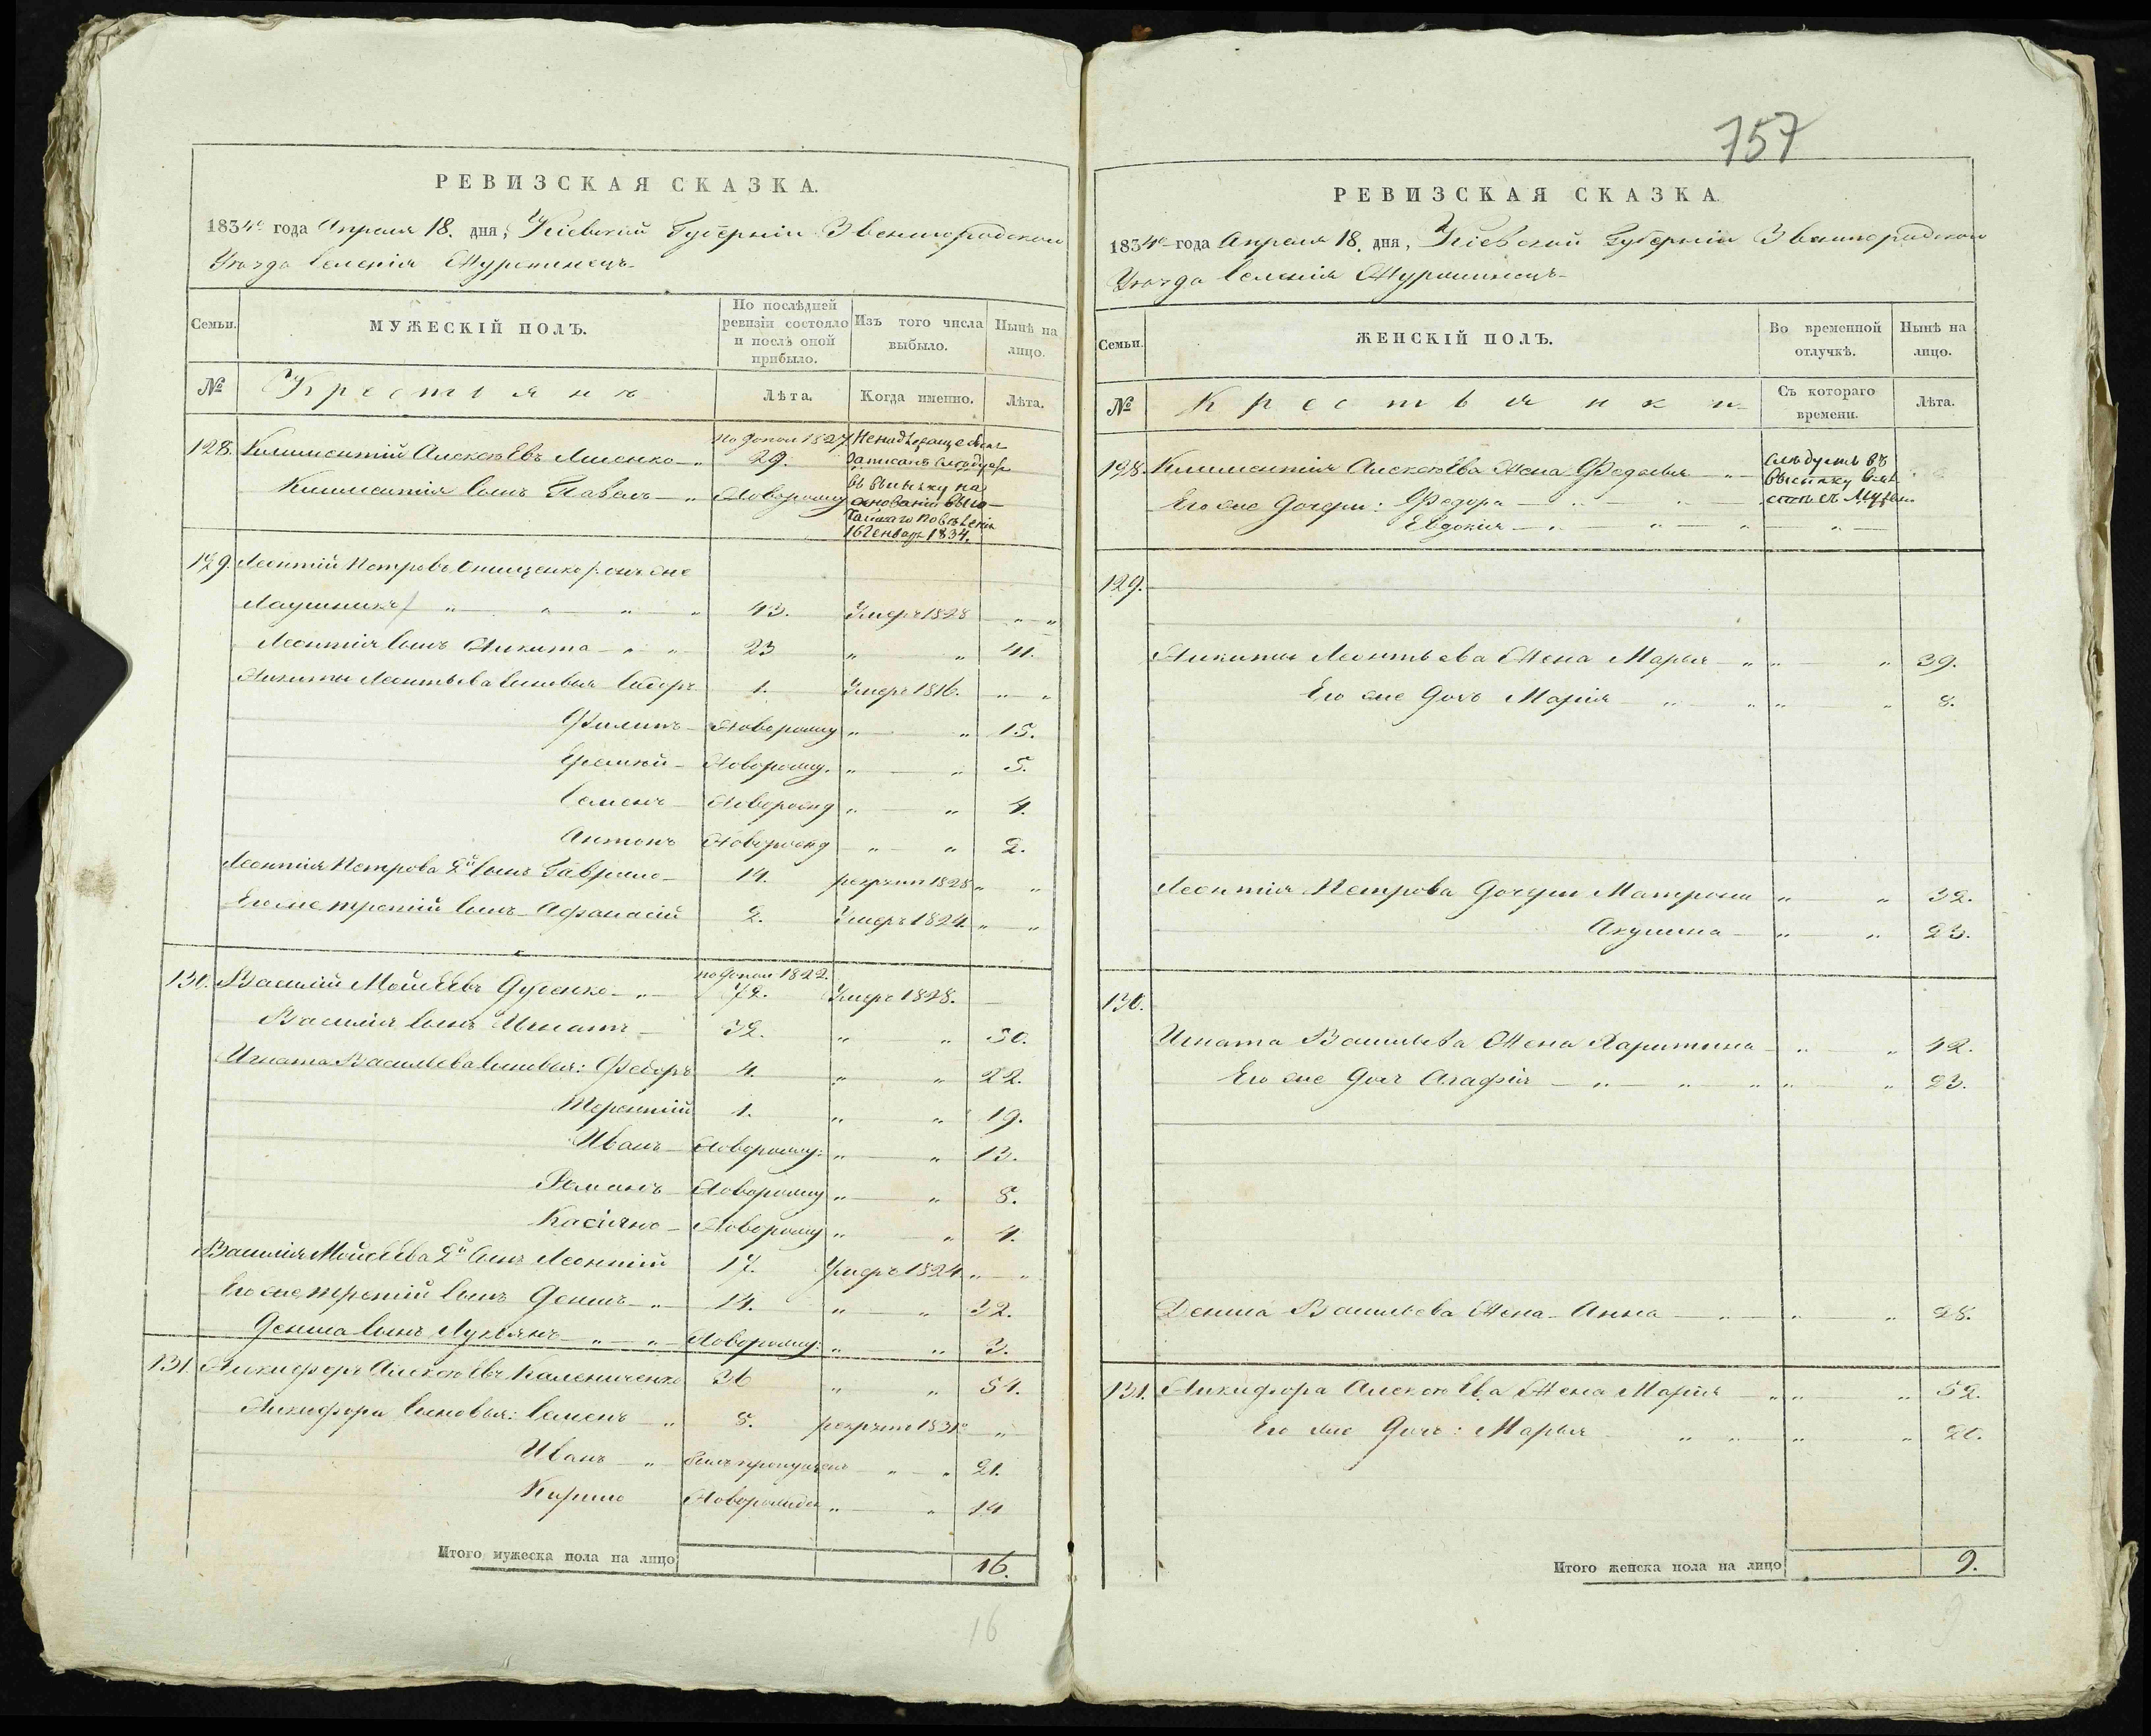 РЕВИЗСКАЯ СКАЗКА.
1834го года Апреля 18. дня, Кіевской Губерніи Звенигородского
Уезда Селенія Журжинецъ
Семьи.
МУЖЕСКІЙ ПОЛЪ.
По послѣдней ревизіи состояло и послѣ оной прибыло.
Изъ того числа выбыло.
Нынѣ на лицо.
№ Крестьянъ Лѣта. Когда именно. Лѣта.
по допол 1827 Ненадлежаще былъ
128. Климентий Алексѣевъ 29. записанъ слѣдуетъ
Климентія Сынъ Павелъ Новорожд въ высылку на
основаніи Высо-
чайшаго повелѣнія
16 Генвар 1834.
129. Леонтій Петровъ Онищенко онъ же
43. Умеръ 1828 " "
Леонтія Сынъ Никита " " 23 " " 41.
Никиты Леонтьева Сыновья Сидоръ 1. Умеръ 1816. " "
Филипъ Новорожд " " 15.
Еремѣй Новорожд. " " 5.
Семенъ Новорожд " " 4.
Антонъ Новорожд " " 2.
Леонтія Петрова 2й Сынъ Гаврило 14. рекрутъ 1828 " "
Его же третій Сынъ Афанасій 2. Умеръ 1824. " "
по допол 1822.
130. Василий Мойсеевъ " 72. Умеръ 1828.
Василія Сынъ Игнатъ 32. " " 50.
Игната Васильева Сыновья: Федоръ 4. " " 22.
Терентій 1. " " 19.
Иванъ Новорожд: " " 13.
Романъ Новорожд " " 8.
Касіянъ Новорожд " " 4.
Василія Мойсеева 2й Сынъ Леонтій 17. Умеръ 1824 " "
Его же третій Сынъ Денисъ " 14. " " 32.
Дениса Сынъ Лукьянъ " " Новорожд: " " 3.
131. Никифоръ Алексѣевъ Калениченко 36 " " 54.
Никифора Сыновья: Семенъ " 8. рекрутъ 1831го "
Иванъ " былъ пропущенъ " " 21.
Кирило Новорожден " " 14
Итого мужеска пола на лицо 16.
16
757
РЕВИЗСКАЯ СКАЗКА
1834го года Апреля 18. дня, Кіевской Губерніи Звенигородского
Уезда Селенія Журжинецъ
Семьи.
ЖЕНСКІЙ ПОЛЪ.
Во временной отлучкѣ.
Нынѣ на лицо.
№ Крестьянки Съ котораго времени. Лѣта.
128. Климентія Алексѣева Жена Федосья " слѣдуетъ въ
высылку вмѣ-
Его же дочери: Федора " " сте съ мужем
Евдокія " " " "
129.
Никиты Леонтьева Жена Марья " " " 39.
Его же дочь Марія " " " " 8.
Леонтія Петрова дочери Матрона " " 32.
Акулина " " 23.
130.
Игната Васильева Жена Харитина " " 42.
Его же дочь Агафія " " " " " 23.
Дениса Васильева Жена Анна " " " 28.
131. Никифора Алексѣева Жена Марія " " " 52.
Его же дочь: Марья " " " " 20.
Итого женска пола на лицо 9.
9